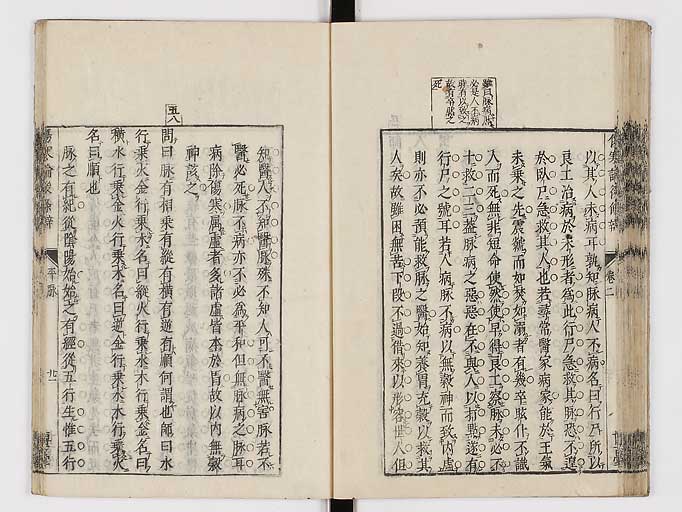 雖曰脉病
必是人不病
以其人未病耳孰知脉病人不病名曰行尸所以
良工治病於未形者為此行尸急救其脉恐不遑
於臥尸急救其人也若尋常醫家病家能於王氣
未乗之先震號而如焚如溺者有幾卒眩仆不識
人而死無非短命使然使早得良工察脉未必不
十救二三葢脉病之惡惡在不與人以
行尸之號耳若人病脉不病以無穀神而致内虛
則亦不必預能救脉之醫始知養胃充穀以救其
人矣故雖困無苦下段不過借來以形容世人但
五八
知醫人不知醫脉殊不知人可不醫無害脉若不
醫必死脉不病亦不必為平和但無脉病之脉耳
病除傷寒風虛者多諸虛皆本於胃故以内無穀
神該之
問曰脉有相乗有縱有橫有逆有順何謂也師曰水
行乗火金行乗木名曰縱火行乗水木行乗金名曰
橫水行乗金火行乗木名曰逆金行乗水木行乗火
名曰順也
脉之有紀從陰陽始始之有經從五行生惟五行
傷寒論後條辨
平脉
卷二